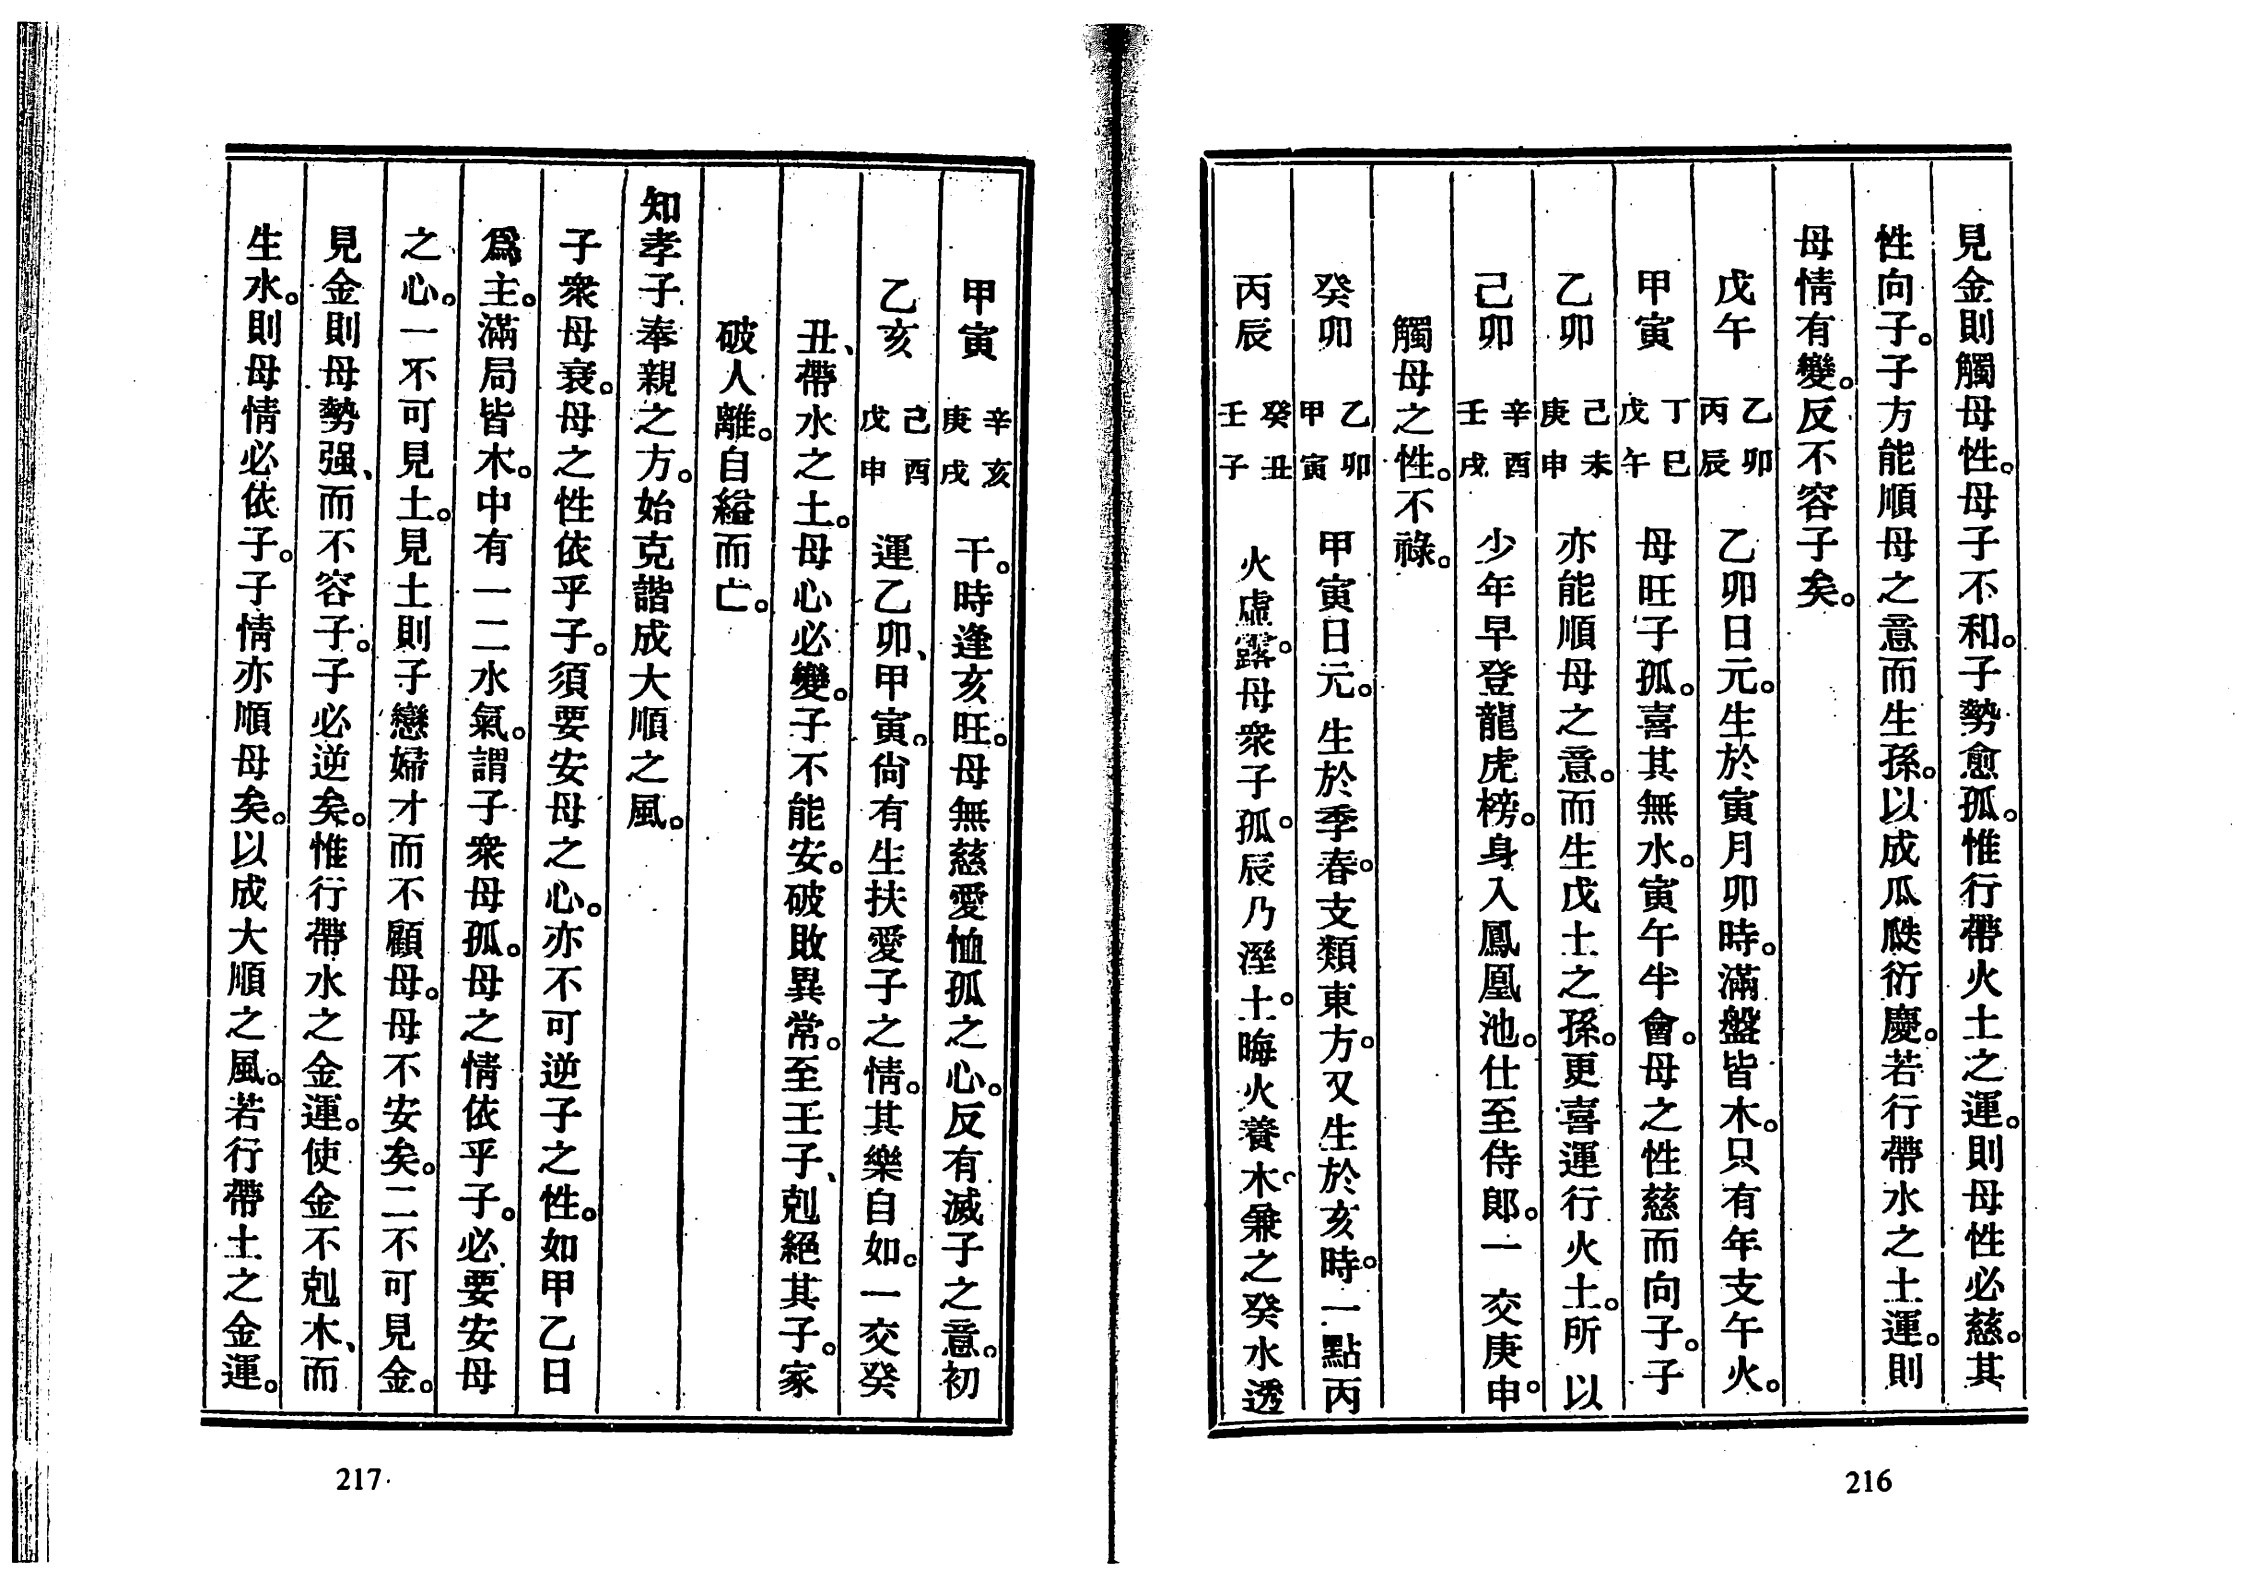 見金則觸母性。母子不和。子勢愈孤。惟行帶火土之運。則母性必慈。其
性向子。子方能順母之意而生孫。以成瓜瓞衍慶。若行帶水之土運。則
母情有變。反不容子矣。
戊午 乙卯 丙辰 乙卯日元。生於寅月卯時。滿盤皆木。只有年支午火。
甲寅 丁巳 戊午 母旺子孤。喜其無水。寅午半會。母之性慈而向子。子
乙卯 己未 庚申 亦能順母之意。而生戊土之孫。更喜運行火土。所以
己卯 辛酉 壬戌 少年早登龍虎榜。身入鳳凰池。仕至侍郎。一交庚申。
觸母之性。不祿。
癸卯 乙卯 甲寅 甲寅日元。生於季春。支類東方。又生於亥時。一點丙
丙辰 癸丑 壬子 火虛露。母衆子孤。辰乃溼土。晦火養木、兼之癸水透
216
甲寅 辛亥 庚戌 干。時逢亥旺。母無慈愛恤孤之心。反有滅子之意。初
乙亥 己酉 戊申 運乙卯、甲寅。尙有生扶愛子之情。其樂自如。一交癸
丑、帶水之土。母心必變。子不能安。破敗異常。至壬子、剋絕其子。家
破人離。自縊而亡。
知孝子奉親之方。始克諧成大順之風。
子衆母衰。母之性依乎子。須要安母之心。亦不可逆子之性。如甲乙日
爲主。滿局皆木。中有一二水氣。謂子衆母孤。母之情依乎子。必要安母
之心。一不可見土。見土則子戀婦才而不顧母。母不安矣。二不可見金。
見金則母勢强、而不容子。子必逆矣。惟行帶水之金運。使金不剋木、而
生水。則母情必依子。子情亦順母矣。以成大順之風。若行帶土之金運。
217